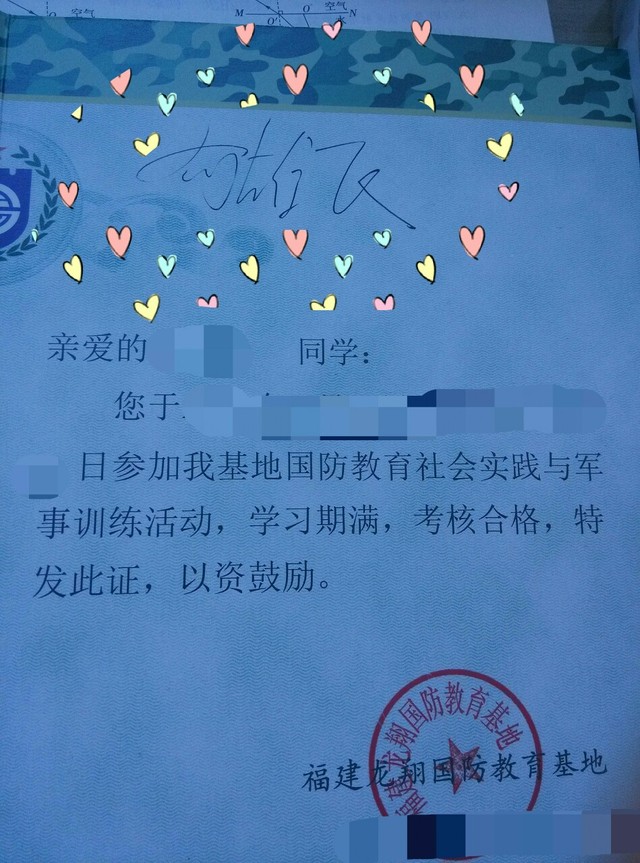 空气
空气
M
O'
N
O'
水
亲爱的 同学：
您于
日参加我基地国防教育社会实践与军
事训练活动，学习期满，考核合格，特
发此证，以资鼓励。
福建龙翔国防教育基地
福建龙翔国防教育基地